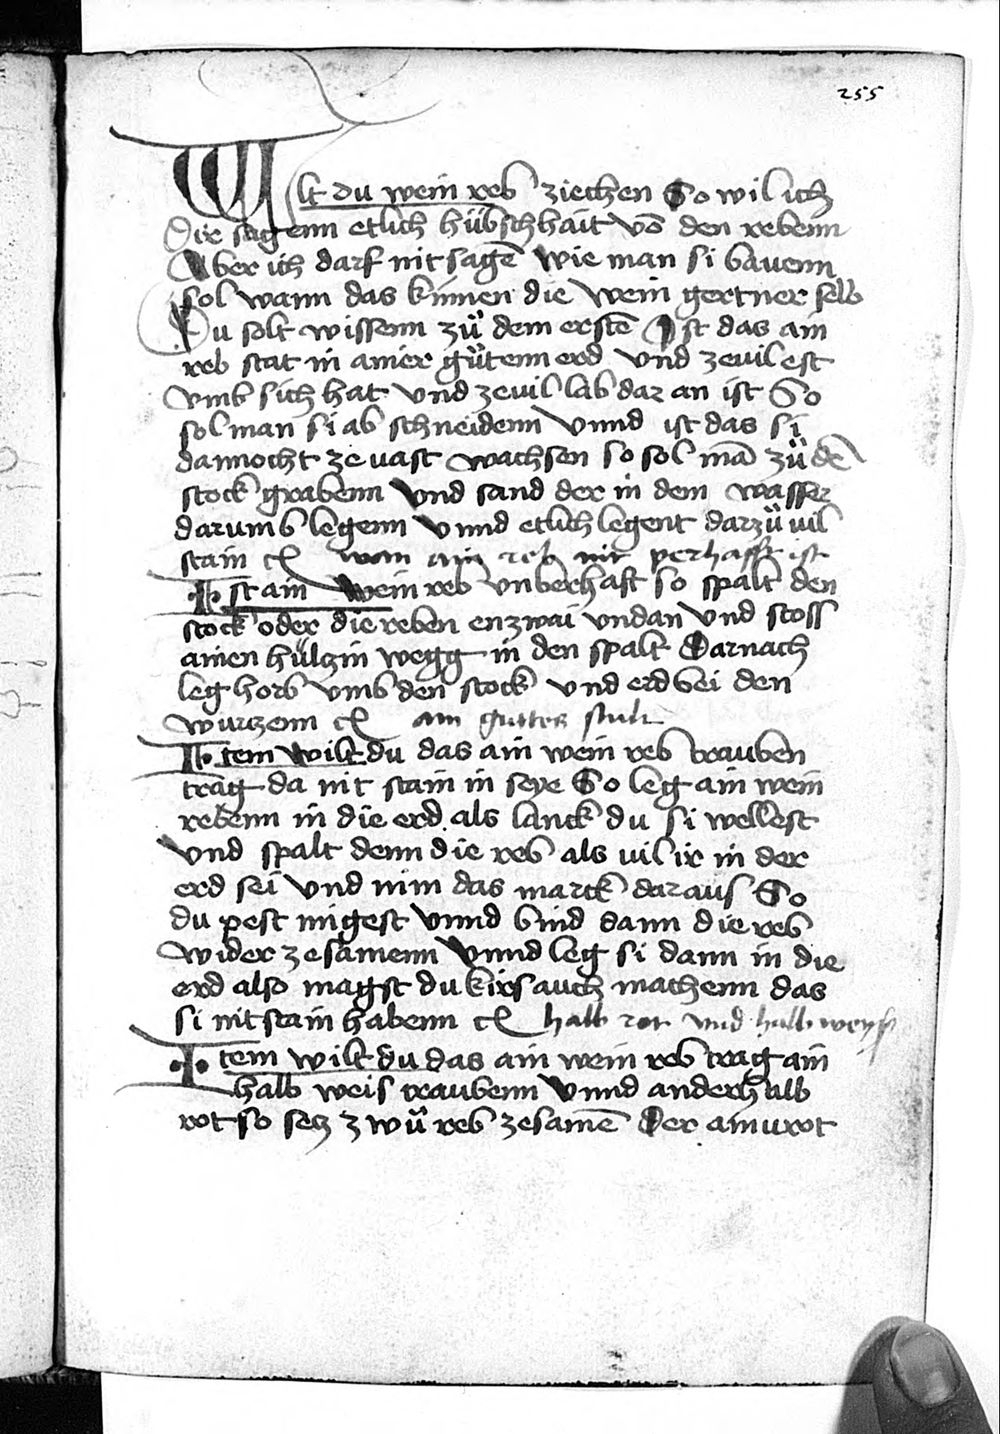 255
Wilt du wein reb ziechen So wil ich
Dir sagenn etlich hübschhait vō den rebenn
Aber ich darf nit sagē wie man si bauenn
sol wann das kinnen die wein gertner selb
Du solt wissenn zů dem erstē Ist das ain
reb stat in ainer gůtenn erd vnd ze vil est
vmb sich hat vnd ze vil lab dar an ist So
sol man si ab schneidenn Vnnd ist das si
dannocht ze vast wachsen so sol mā zů dē
stock grabenn Vnd sand der in dem wasser
darumb legenn Vnnd etlich legent darzů vil
stain wan ain reb nit perhafft ist
Ist ain wein reb vnberhaft so spalt den
stock oder die reben enzwai vndan vnd stoss
ainen hülzin wegg in den spalt Darnach
leg horb vmb den stock vnd erd bei den
wurzenn ain guttes stuk
Item wilt du das ain wein reb trauben
trag da nit stain in seye So leg ain wein
rebenn in die erd als lanck du si wellest
Vnd spalt denn die reb als vil ir in der
erd sei Vnd nim das marck daraus So
du pest migest Vnnd bind dann die reb
wider zesamenn Vnnd leg si dann in die
erd also magst du kirs auch machenn das
si nit stain habenn halb rot vnd halb weyss
Item wilt du das ain wein reb trag ain
halb weis traubenn Vnnd anderhalb
rot so setz zwů reb zesamē Der ainu rot